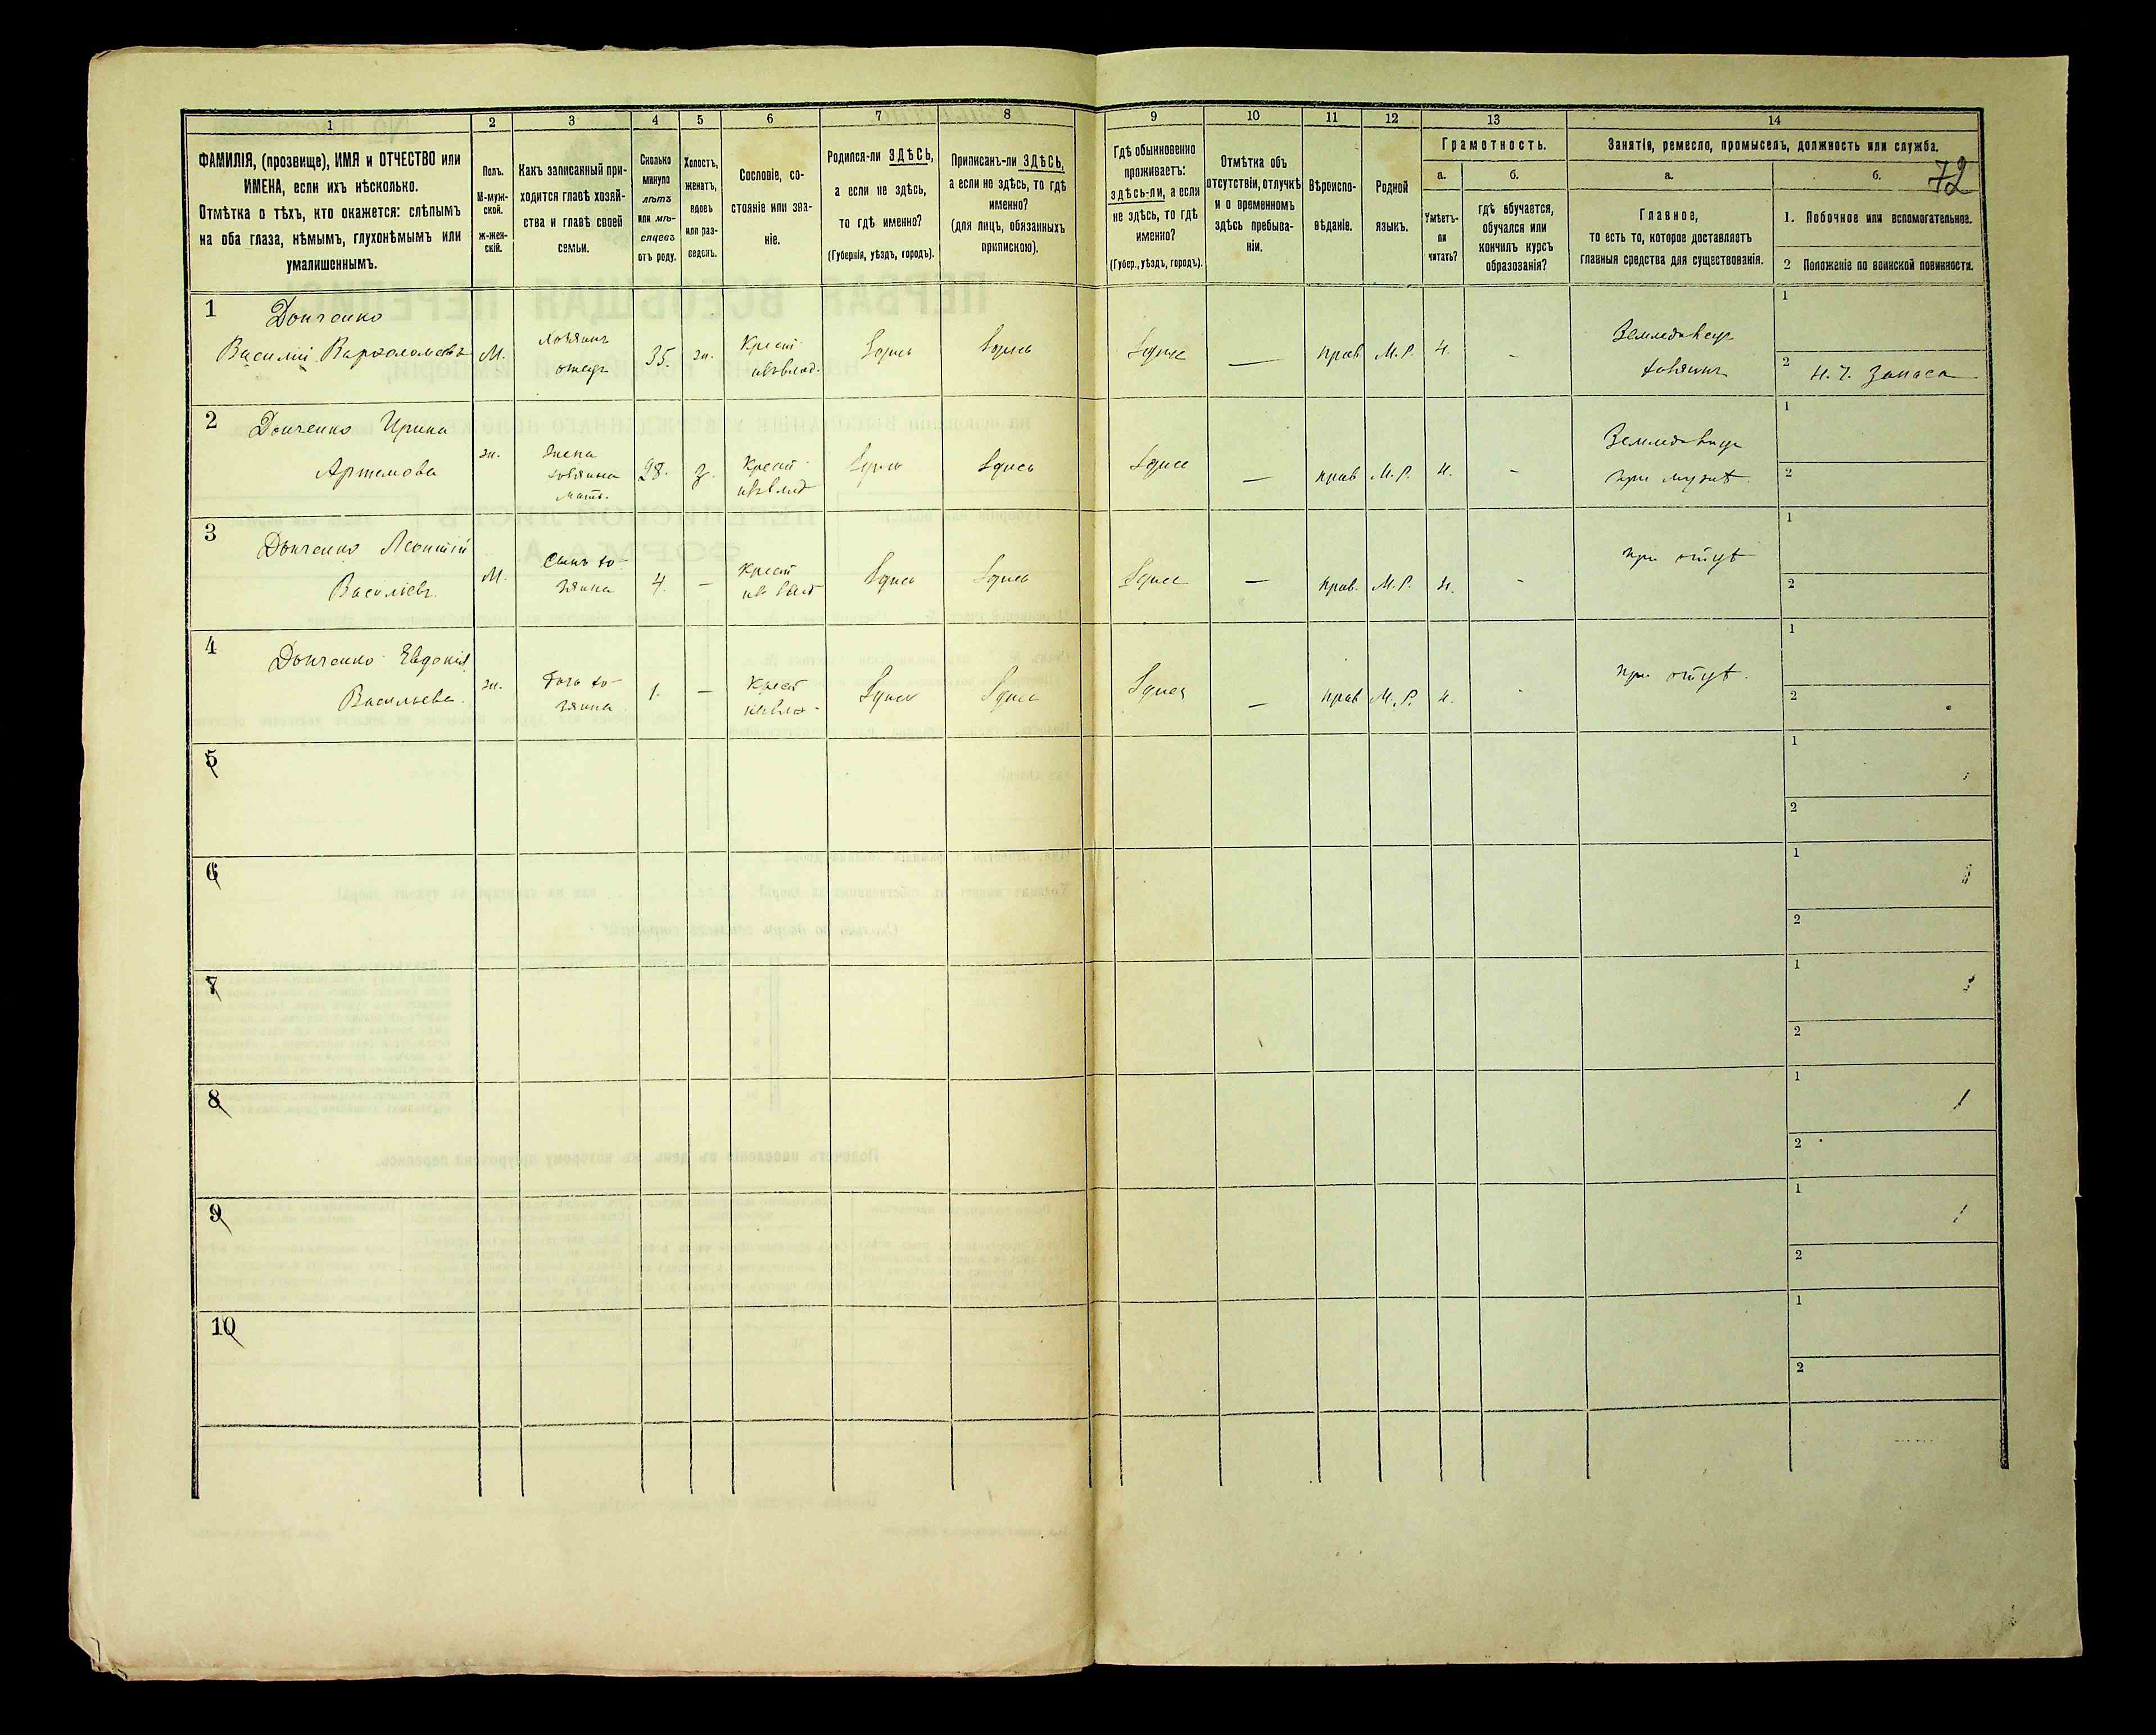 1
2
3
4
5
6
7
8
9
10
11
12
13
14
ФАМИЛІЯ, (прозвище), ИМЯ и ОТЧЕСТВО или
ИМЕНА, если ихъ нѣсколько.
Отмѣтка о тѣхъ, кто окажется: слѣпымъ
на оба глаза, нѣмымъ, глухонѣмымъ или
умалишеннымъ.
Полъ.
М-муж-
ской.
ж-жен-
скій.
Какъ записанный при-
ходится главѣ хозяй-
ства и главѣ своей
семьи.
Сколько
минуло
лѣтъ
или мѣ-
сяцевъ
отъ роду.
Холостъ,
женатъ,
вдовъ
или раз-
веденъ.
Сословіе, со-
стояніе или зва-
ніе.
Родился-ли ЗДѢСЬ,
а если не здѣсь,
то гдѣ именно?
(Губернія, уѣздъ, городъ).
Приписанъ-ли ЗДѢСЬ,
а если не здѣсь, то гдѣ
именно?
(для лицъ, обязанныхъ
припискою).
Гдѣ обыкновенно
проживаетъ:
здѣсь-ли, а если
не здѣсь, то гдѣ
именно?
(Губер., уѣздъ, городъ).
Отмѣтка объ
отсутствіи, отлучкѣ
и о временномъ
здѣсь пребыва-
ніи.
Вѣроиспо-
вѣданіе.
Родной
языкъ.
Грамотность.
а.
Умѣетъ-
ли
читать?
б.
гдѣ обучается,
обучался или
кончилъ курсъ
образованія?
Занятія, ремесло, промыселъ, должность или служба.
72
а.
Главное,
то есть то, которое доставляетъ
главныя средства для существованія.
б.
1. Побочное или вспомогательное.
2 Положеніе по воинской повинности.
1
Донченко
Василій Варѳоломеевъ
М.
Хозяинъ
отецъ
35.
ж.
Крест
Здѣсь
Здѣсь
Здѣсь
—
прав
М.Р.
Н.
-
Земледѣлец
хозяинъ
1
2
Н. Ч. Запаса
2
Донченко Ирина
Артемова
ж.
Жена
хозяина
мать.
28.
з.
Крест
Здѣсь
Здѣсь
Здѣсь
—
прав
М.Р.
Н.
-
при мужѣ
1
2
3
Донченко Леонтій
Васильевъ.
М.
Сынъ хо-
зяина
4.
—
Крест
Здѣсь
Здѣсь
Здѣсь
—
прав.
М.Р.
Н.
-
при отцѣ
1
2
4
Донченко Евдокія
Васильева.
ж.
Дочь хо-
зяина
1.
—
Крест
Здѣсь
Здѣсь
Здѣсь
—
прав
М.Р.
Н.
при отцѣ.
1
2
5
1
2
6
1
2
7
1
2
8
1
2
9
1
2
10
1
2